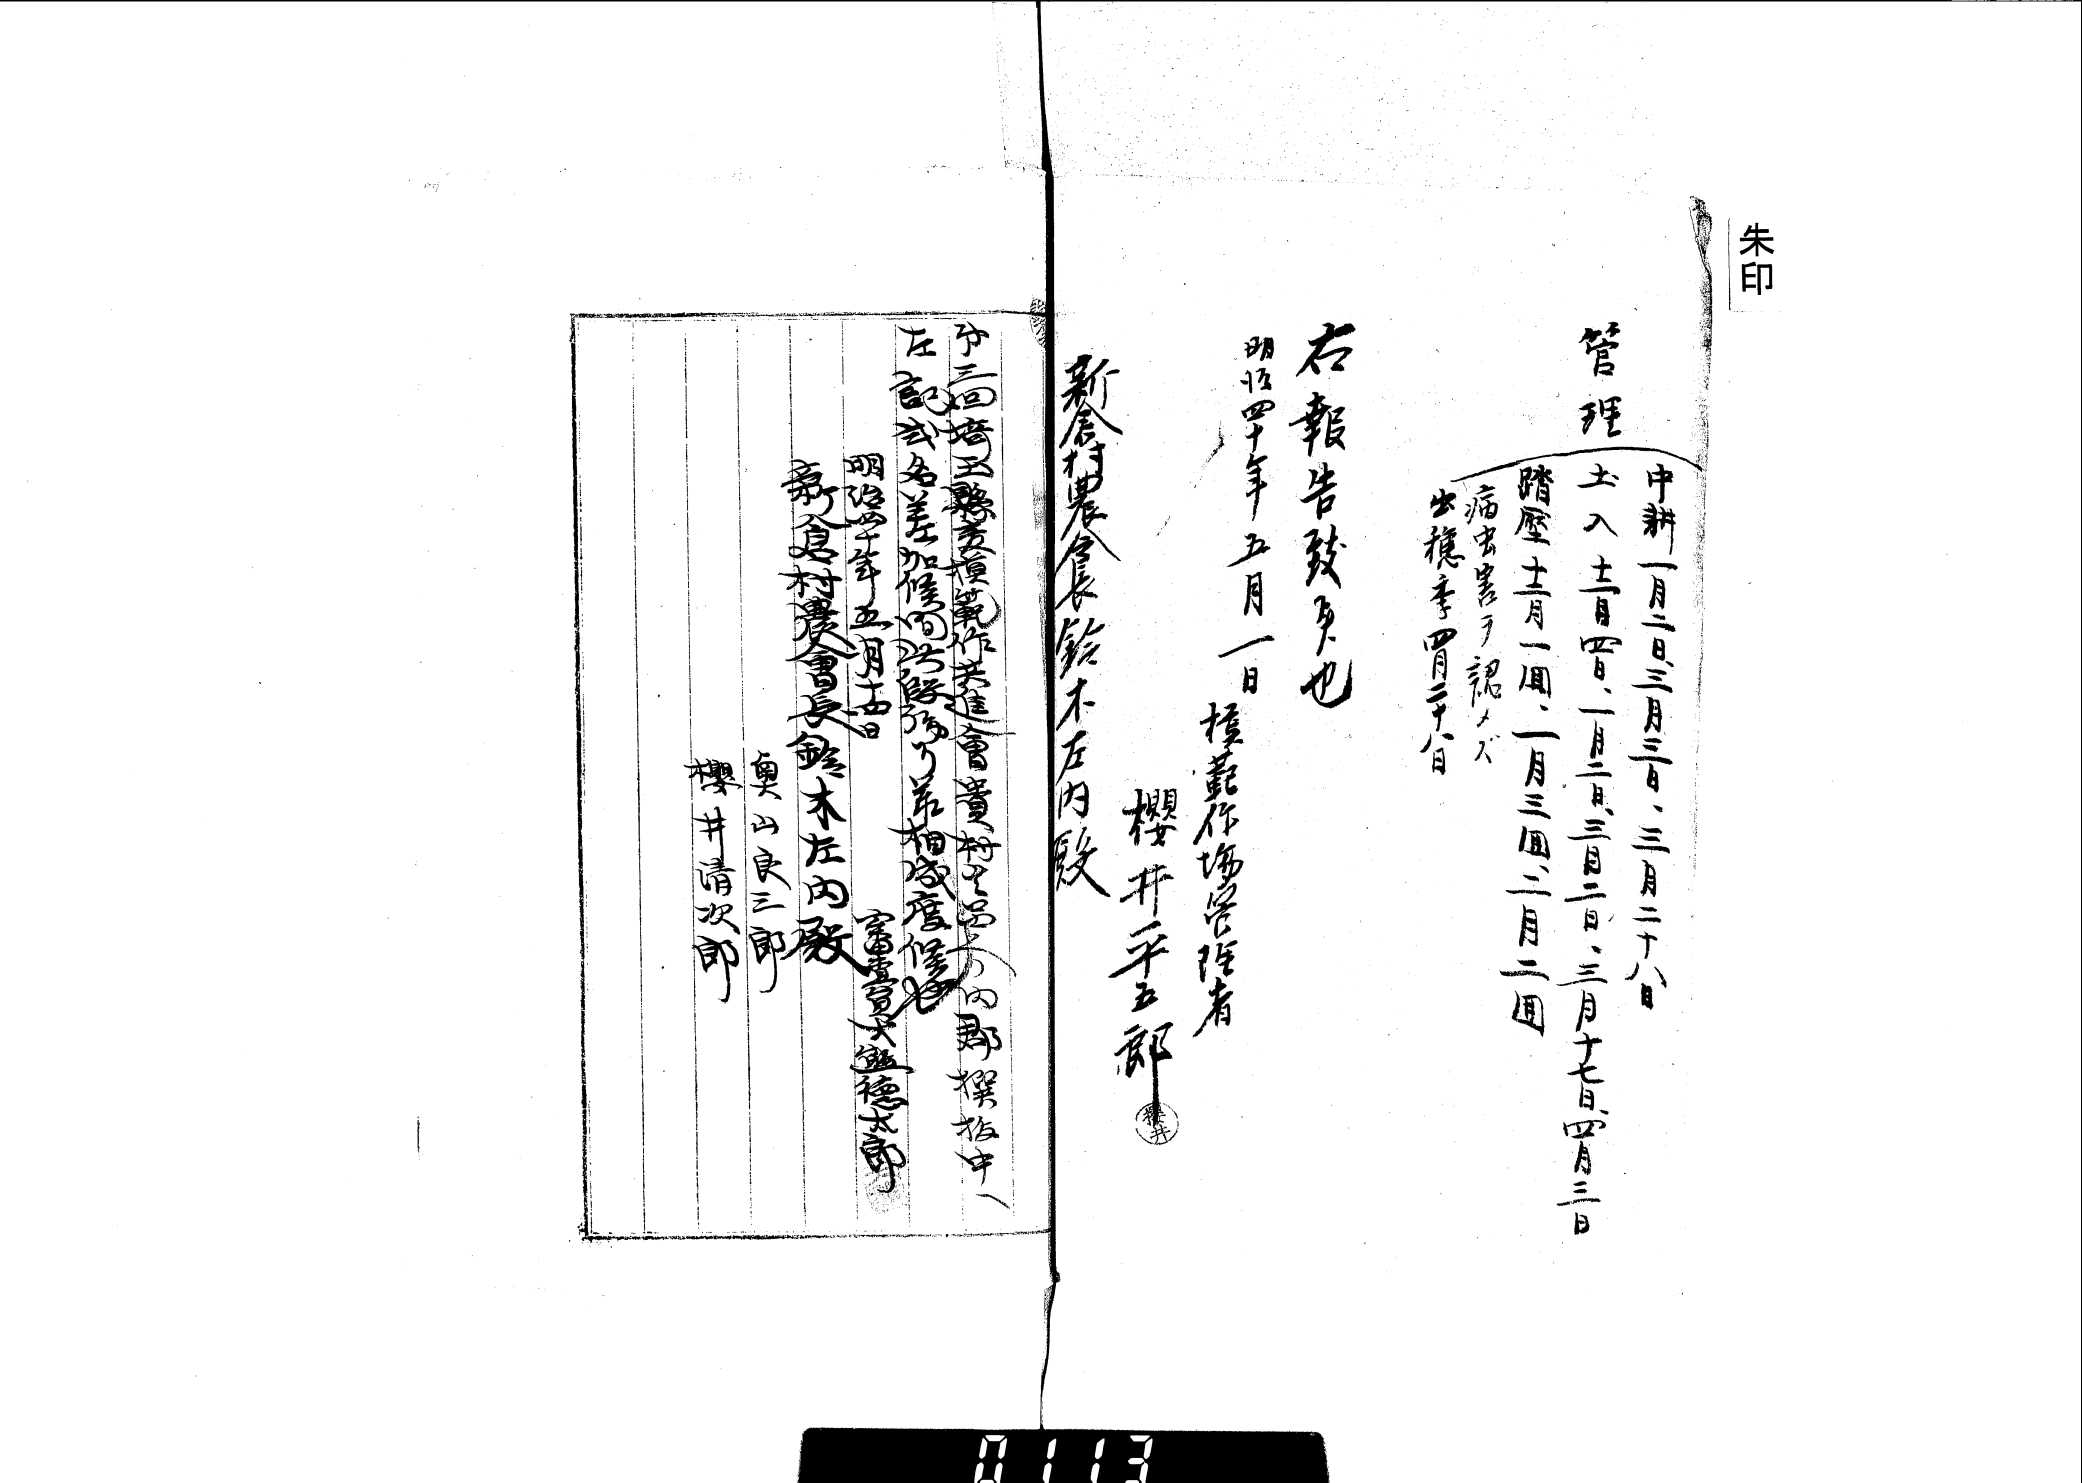 朱印
管理
中耕 一月二日、三月三日、三月二十八日
土入 十二月四日、一月二日、三月二日、三月十七日、四月三日
踏壓 十二月一回、一月三回、二月二回
病虫害ヲ認メズ
出穂季 四月二十八日
右報告致候也
明治四十年五月一日
模範作場管理者
櫻井平五郎
櫻井
新倉村農会長 鈴木左内殿
第三回埼玉縣麦模範作共進會貴村出品ノ内郡撰抜中ヘ
左記弐名差加候間此段御了承相成度候也
明治四十年五月十四日
審査員 大熊德太郎
新倉村農會長 鈴木左内殿
奥山良三郎
櫻井清次郎
0113